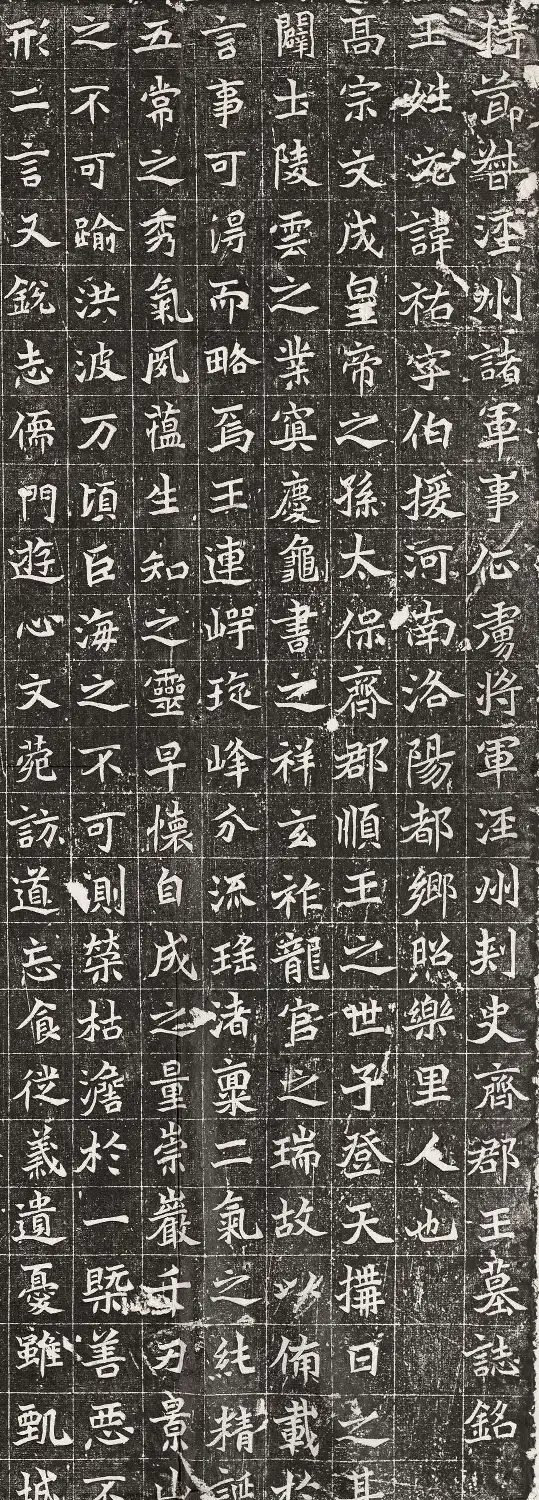 持節督涇州諸軍事征虜將軍涇州刾史齊郡王墓誌銘
王姓元諱祐字伯援河南洛陽都鄉照樂里人也
髙宗文成皇帝之孫太保齊郡順王之世子登天搆日之基
闢土陵雲之業寘慶龜書之祥玄祚龍官之瑞故以俻載於
言事可淂而略焉王連崿琁峰分流瑤渚稟二氣之純精誕
五常之秀氣夙蘊生知之靈早懷自成之量崇巖千刃景山
之不可踰洪波万頃巨海之不可測榮枯澹於一槩善惡不
形二言又銳志儒門遊心文菀訪道忘食從義遺憂雖甄城